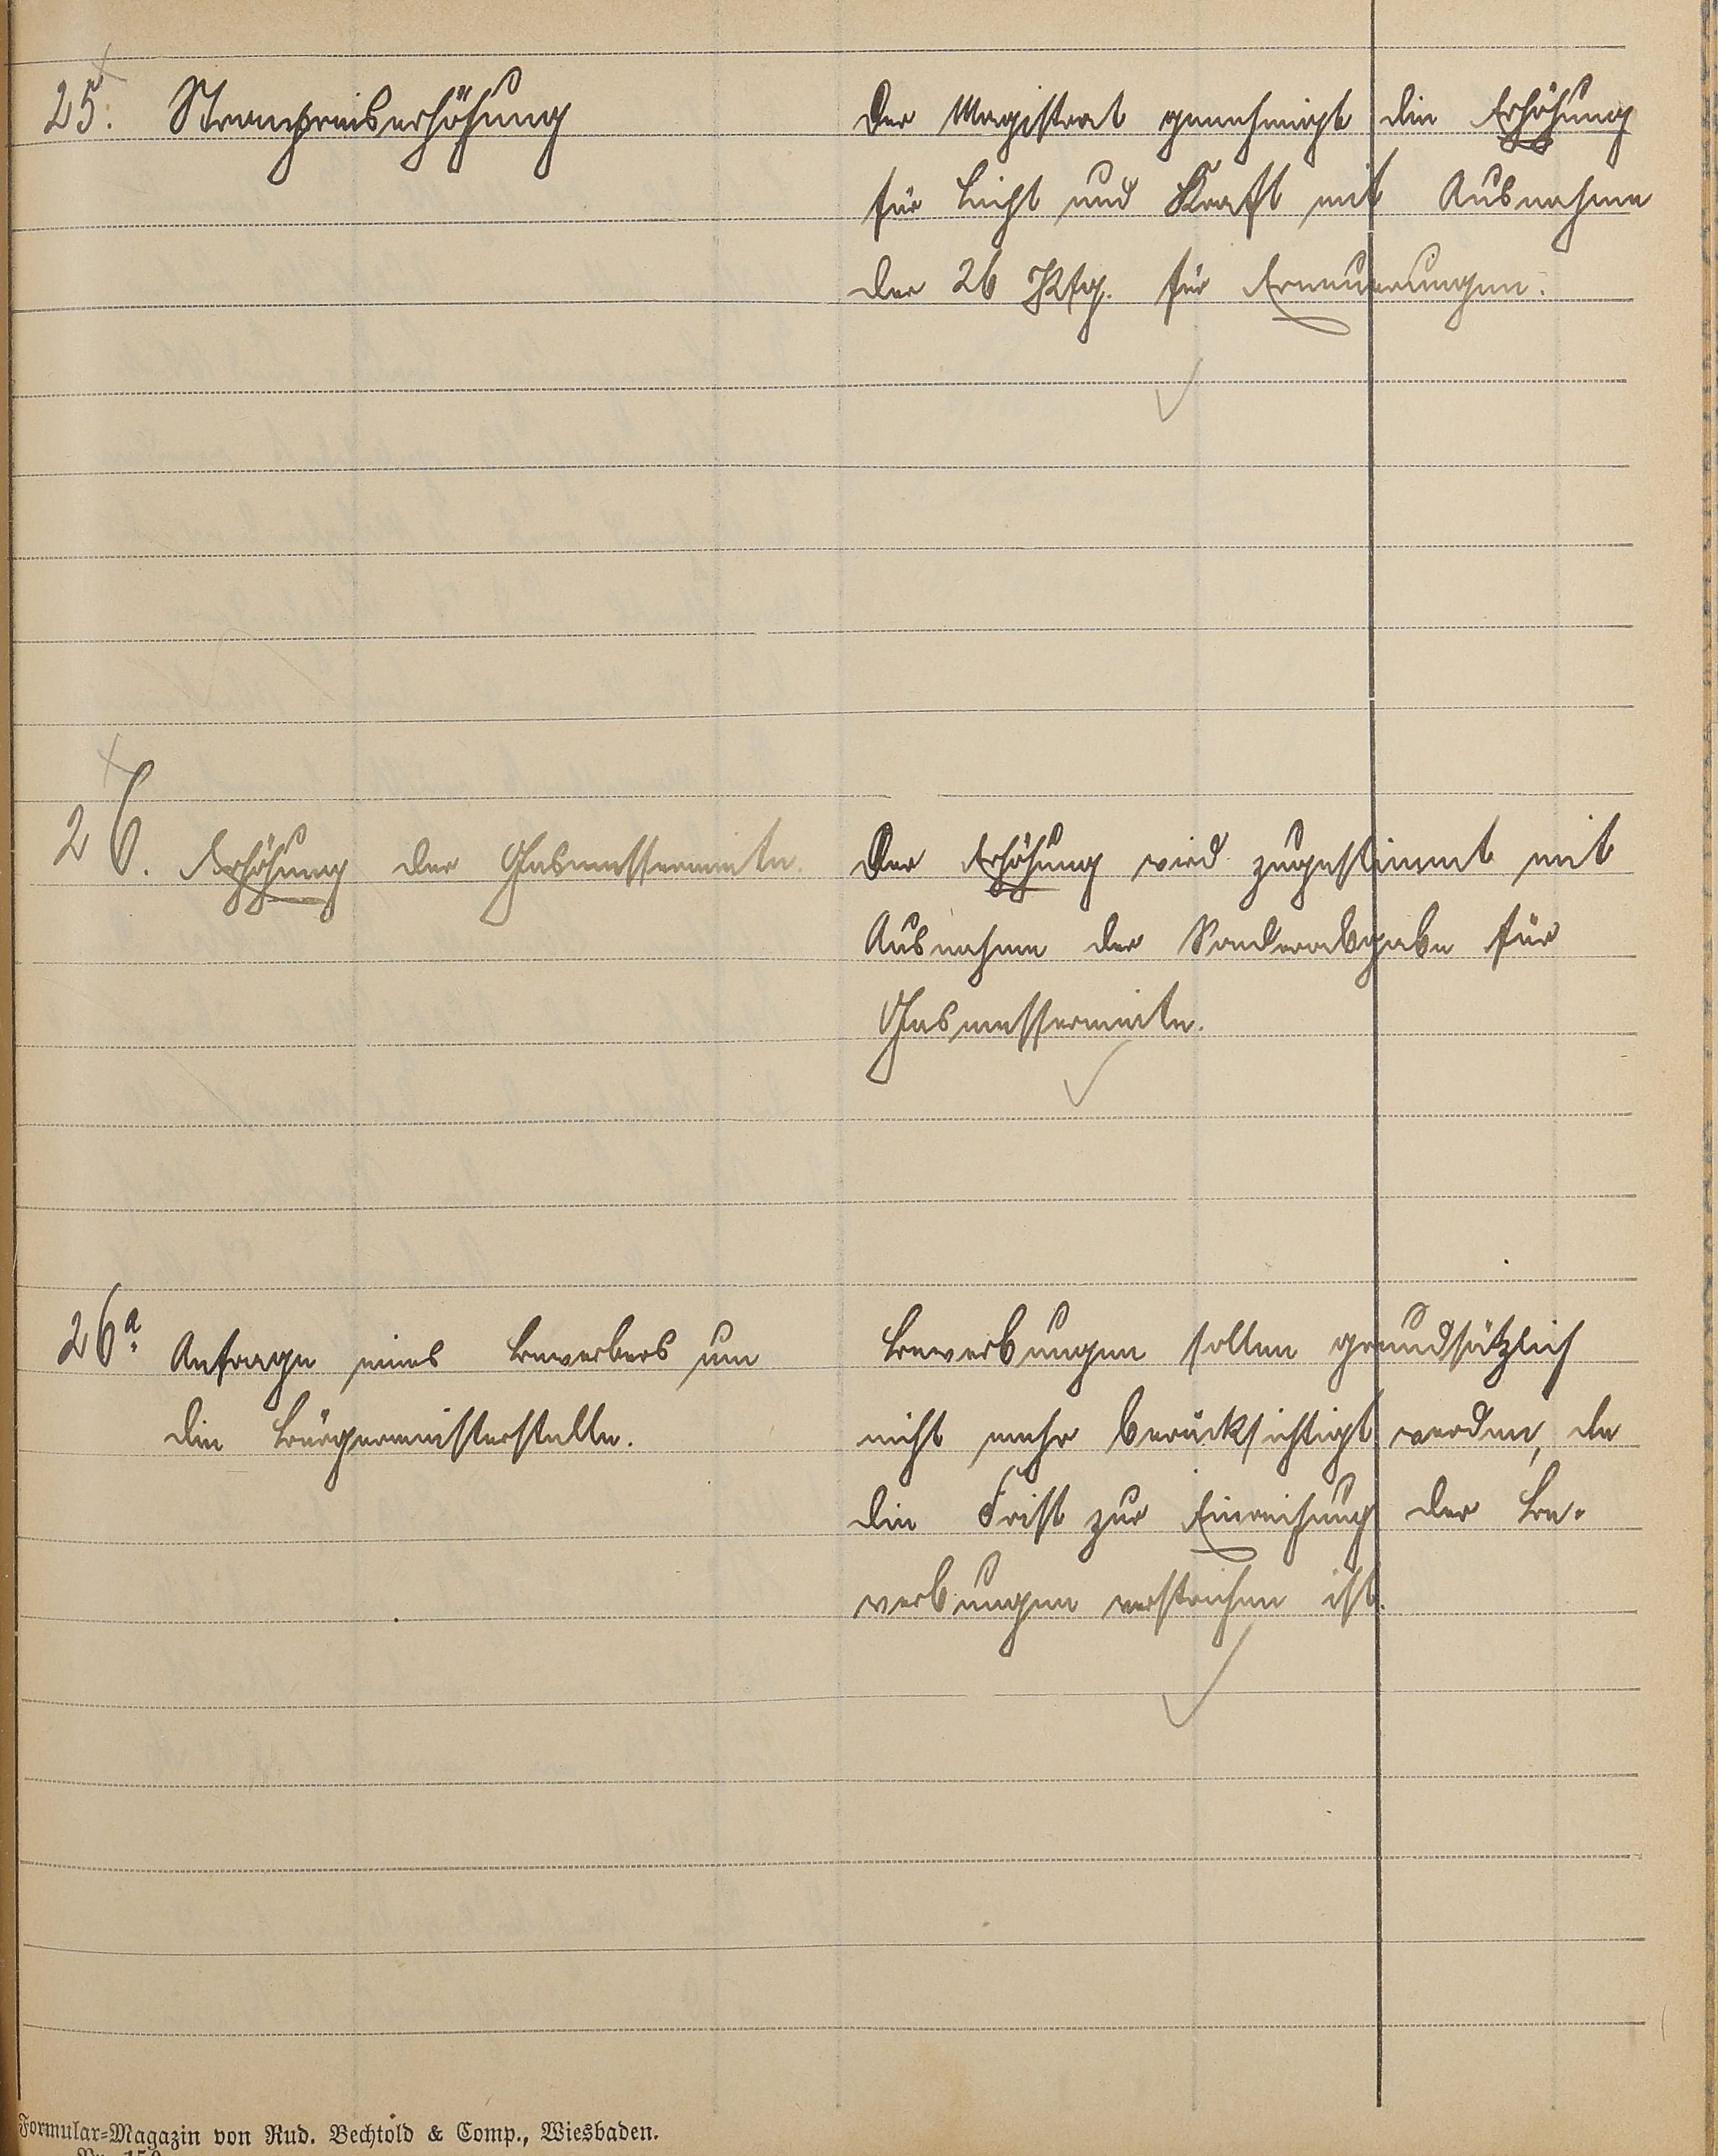 25. Strompreiserhöhung
Der Magistrat genehmigt die Erhöhung
für Licht und Kraft mit Ausnahme
der 26 Pfg. für Erneuerungen.
26. Erhöhung der Gasmessermiete.
Der Erhöhung wird zugestimmt mit
Ausnahme der Sonderabgabe für
Gasmessermiete.
26a. Anfrage eines Bewerbers um
die Bürgermeisterstelle.
Bewerbungen sollen grundsätzlich
nicht mehr berücksichtigt werden, da
die Frist zur Einreichung der Be-
werbungen verstrichen ist.
Formular-Magazin von Rud. Bechtold & Comp., Wiesbaden.